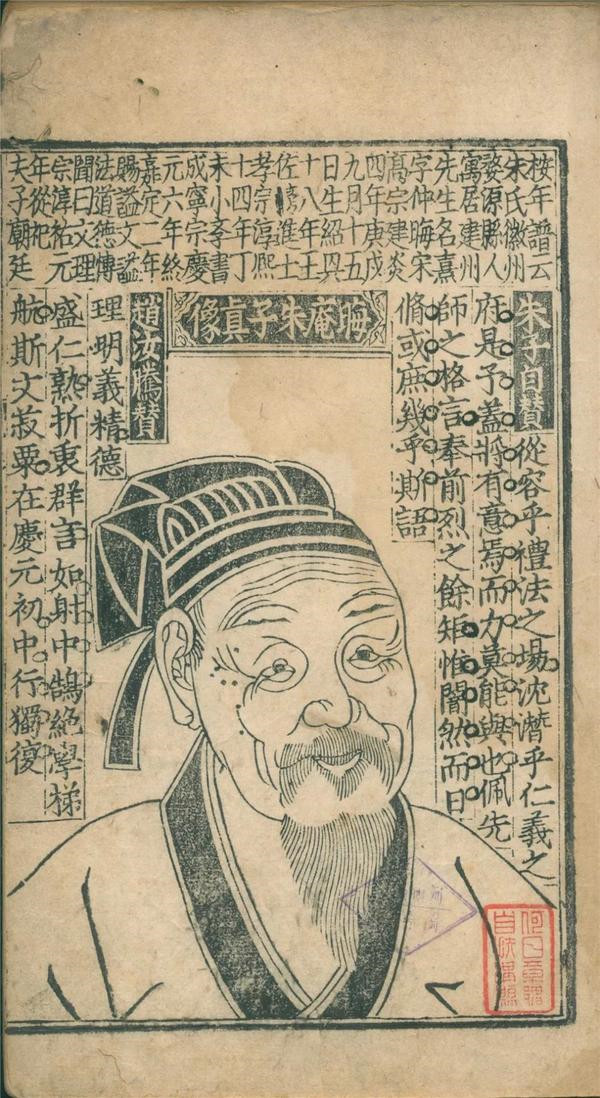 按年譜云
朱氏徽州
婺源縣人
寓居建州
先生名熹
字仲晦宋
高宗建炎
四年庚戌
九月十五
日生紹興
十八年王
佐榜進士
孝宗淳熙
十四年丁
未小斈書
成寧宗慶
元六年終
嘉定二年
賜謚文謚
法道德博
聞曰文理
宗淳祐元
年從祀
夫子廟廷
朱子自贊 從容乎禮法之場沈潛乎仁義之
府是予蓋將有意焉而力莫能與也佩先
師之格言奉前烈之餘矩惟闇然而日
脩或庶幾乎斯語
晦庵朱子真像
趙汝騰贊
理明義精德
盛仁熟折衷群言如射中鵠絕學梯
航斯文菽粟在慶元初中行獨復